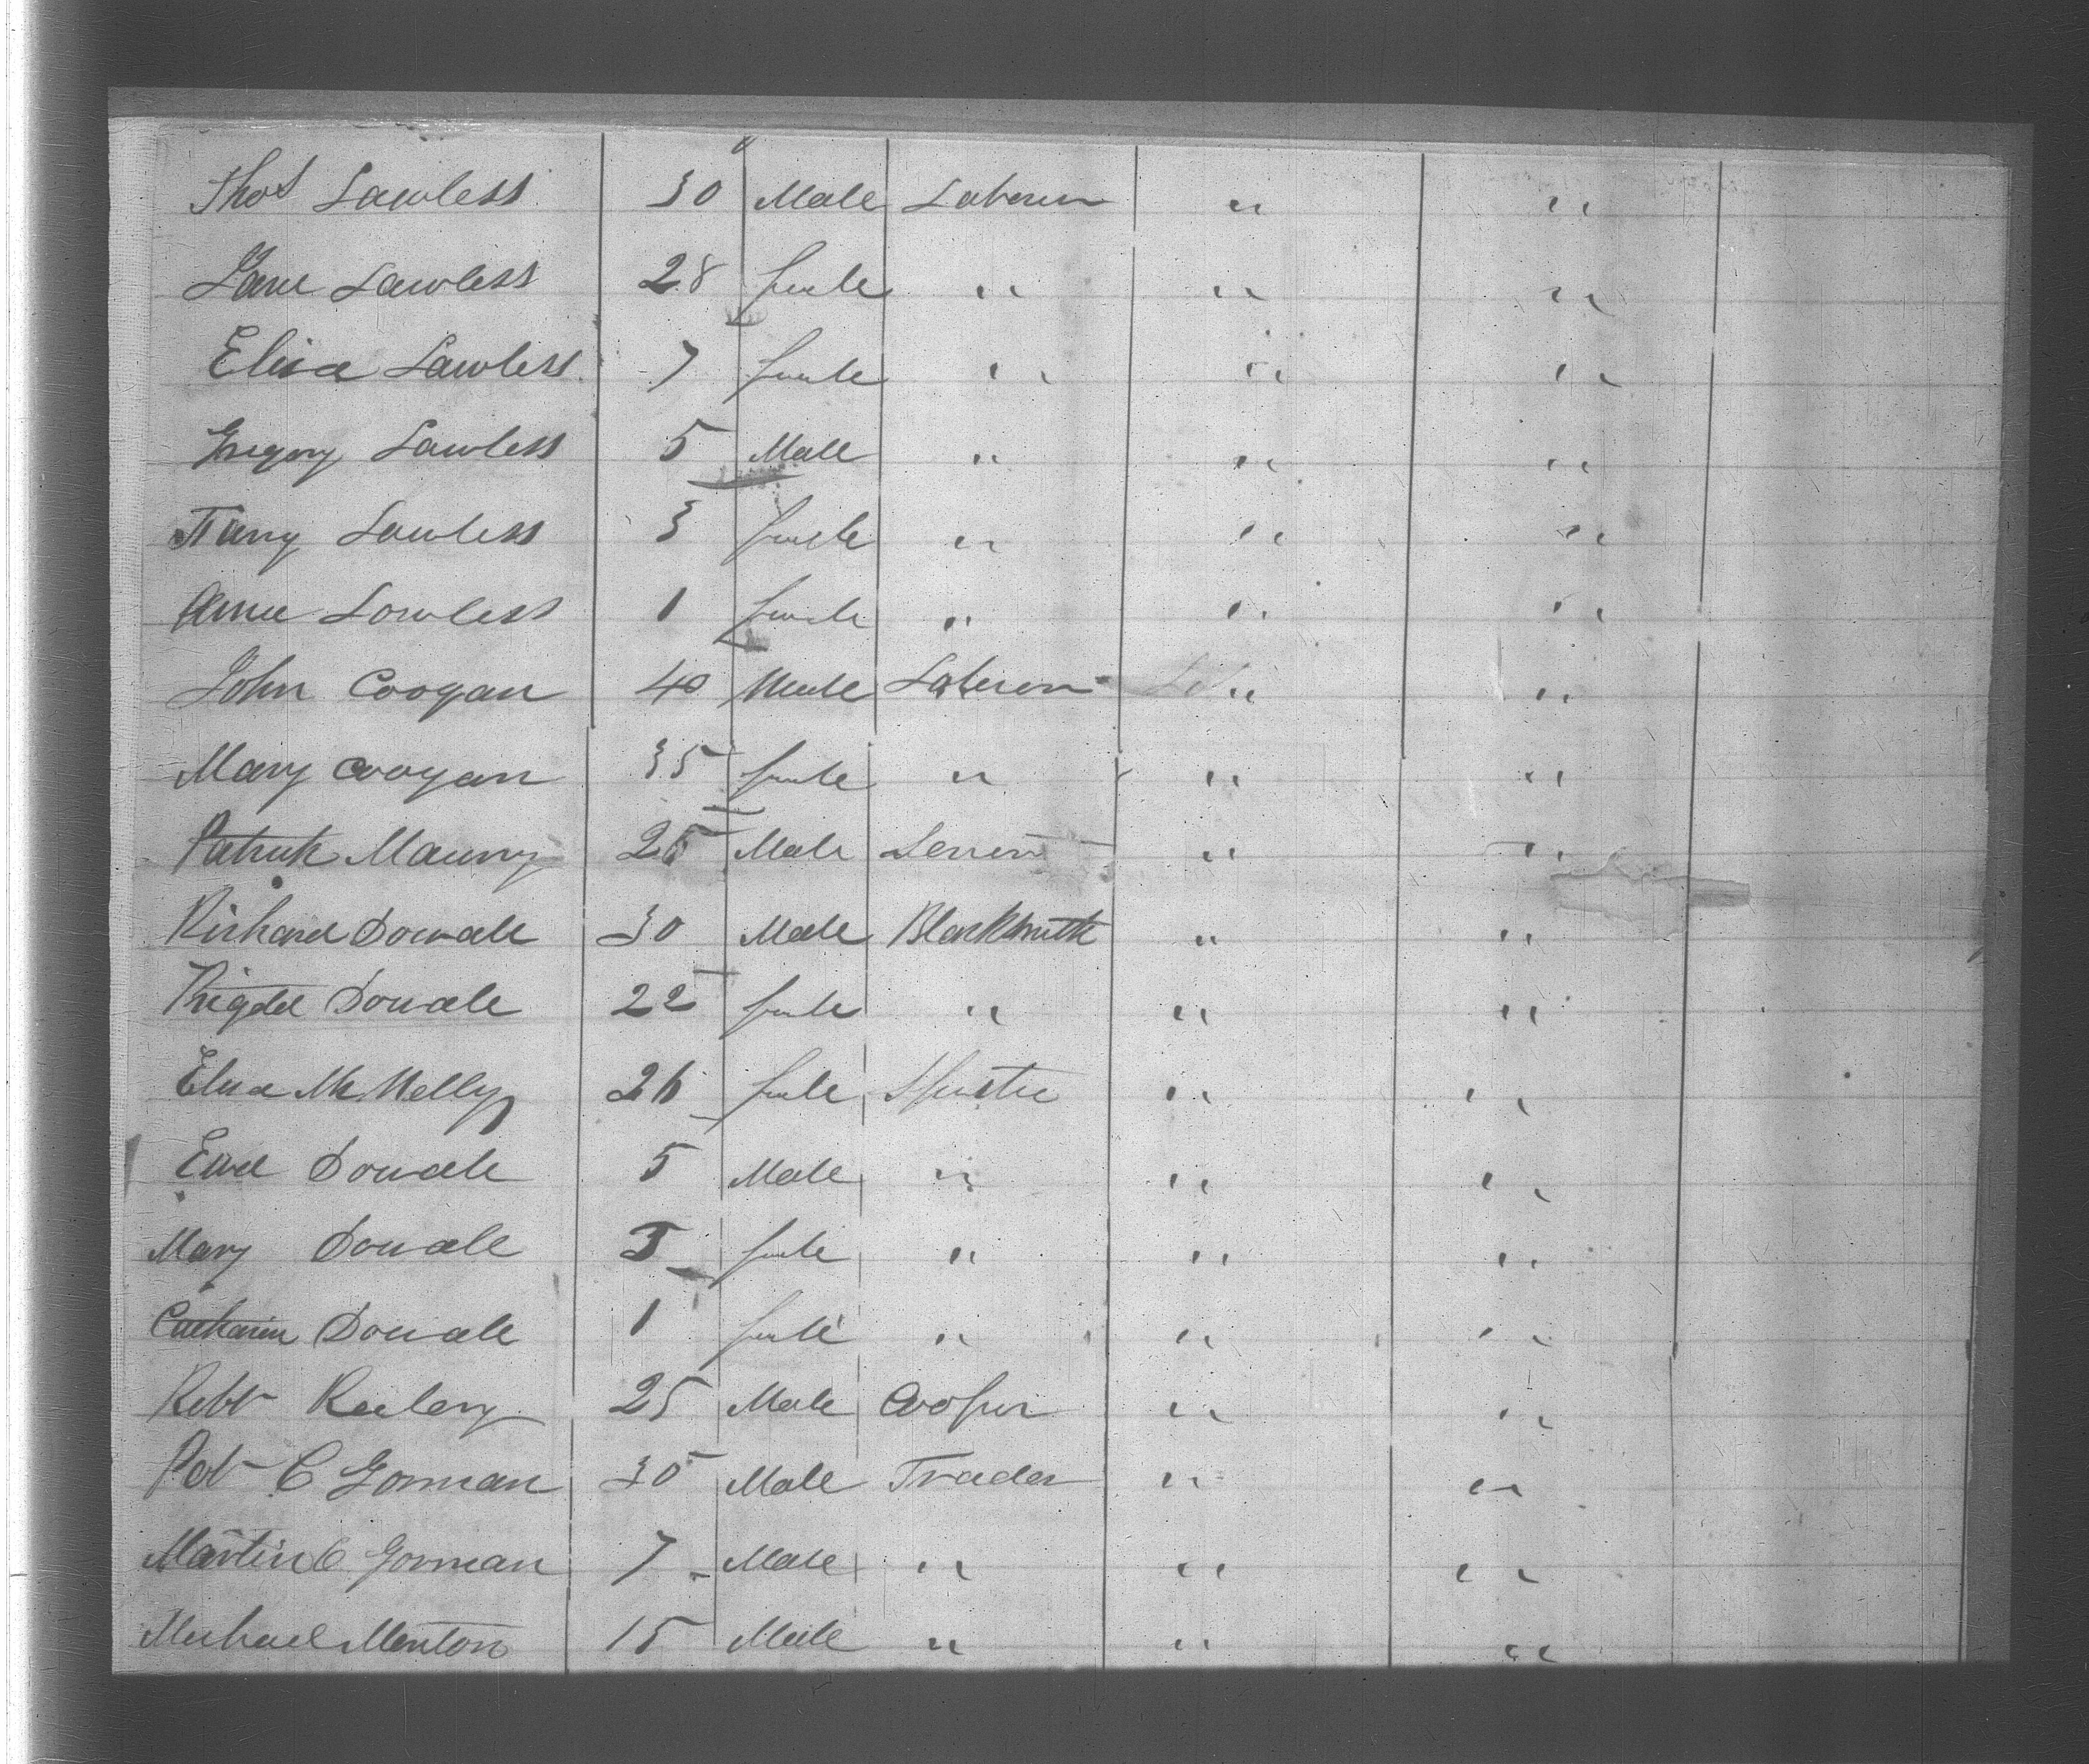 Thos Lawless 30 Male Laborer " "
Jane Lawless 28 female " " "
Eliza Lawless 7 female " " "
Gregory Lawless 5 Male " " "
Lawless 3 female " " "
Anne Lawless 1 female " " "
John Coogan 40 Male Laborer " "
Mary Coogan 35 female " " "
Patrick 25 Male " "
Richard Dowdle 30 Male Blacksmith " "
Brigdet Dowdle 22 female " " "
Eliza 26 female " "
Edwd Dowdle 5 Male " " "
Mary Dowdle 3 female " " "
Catharin Dowdle 1 female " " "
Robt 25 Male Cooper " "
Pat C Gorman 30 Male Trader " "
Martin C Gorman 7 Male " " "
Michael Menton 15 Male " " "